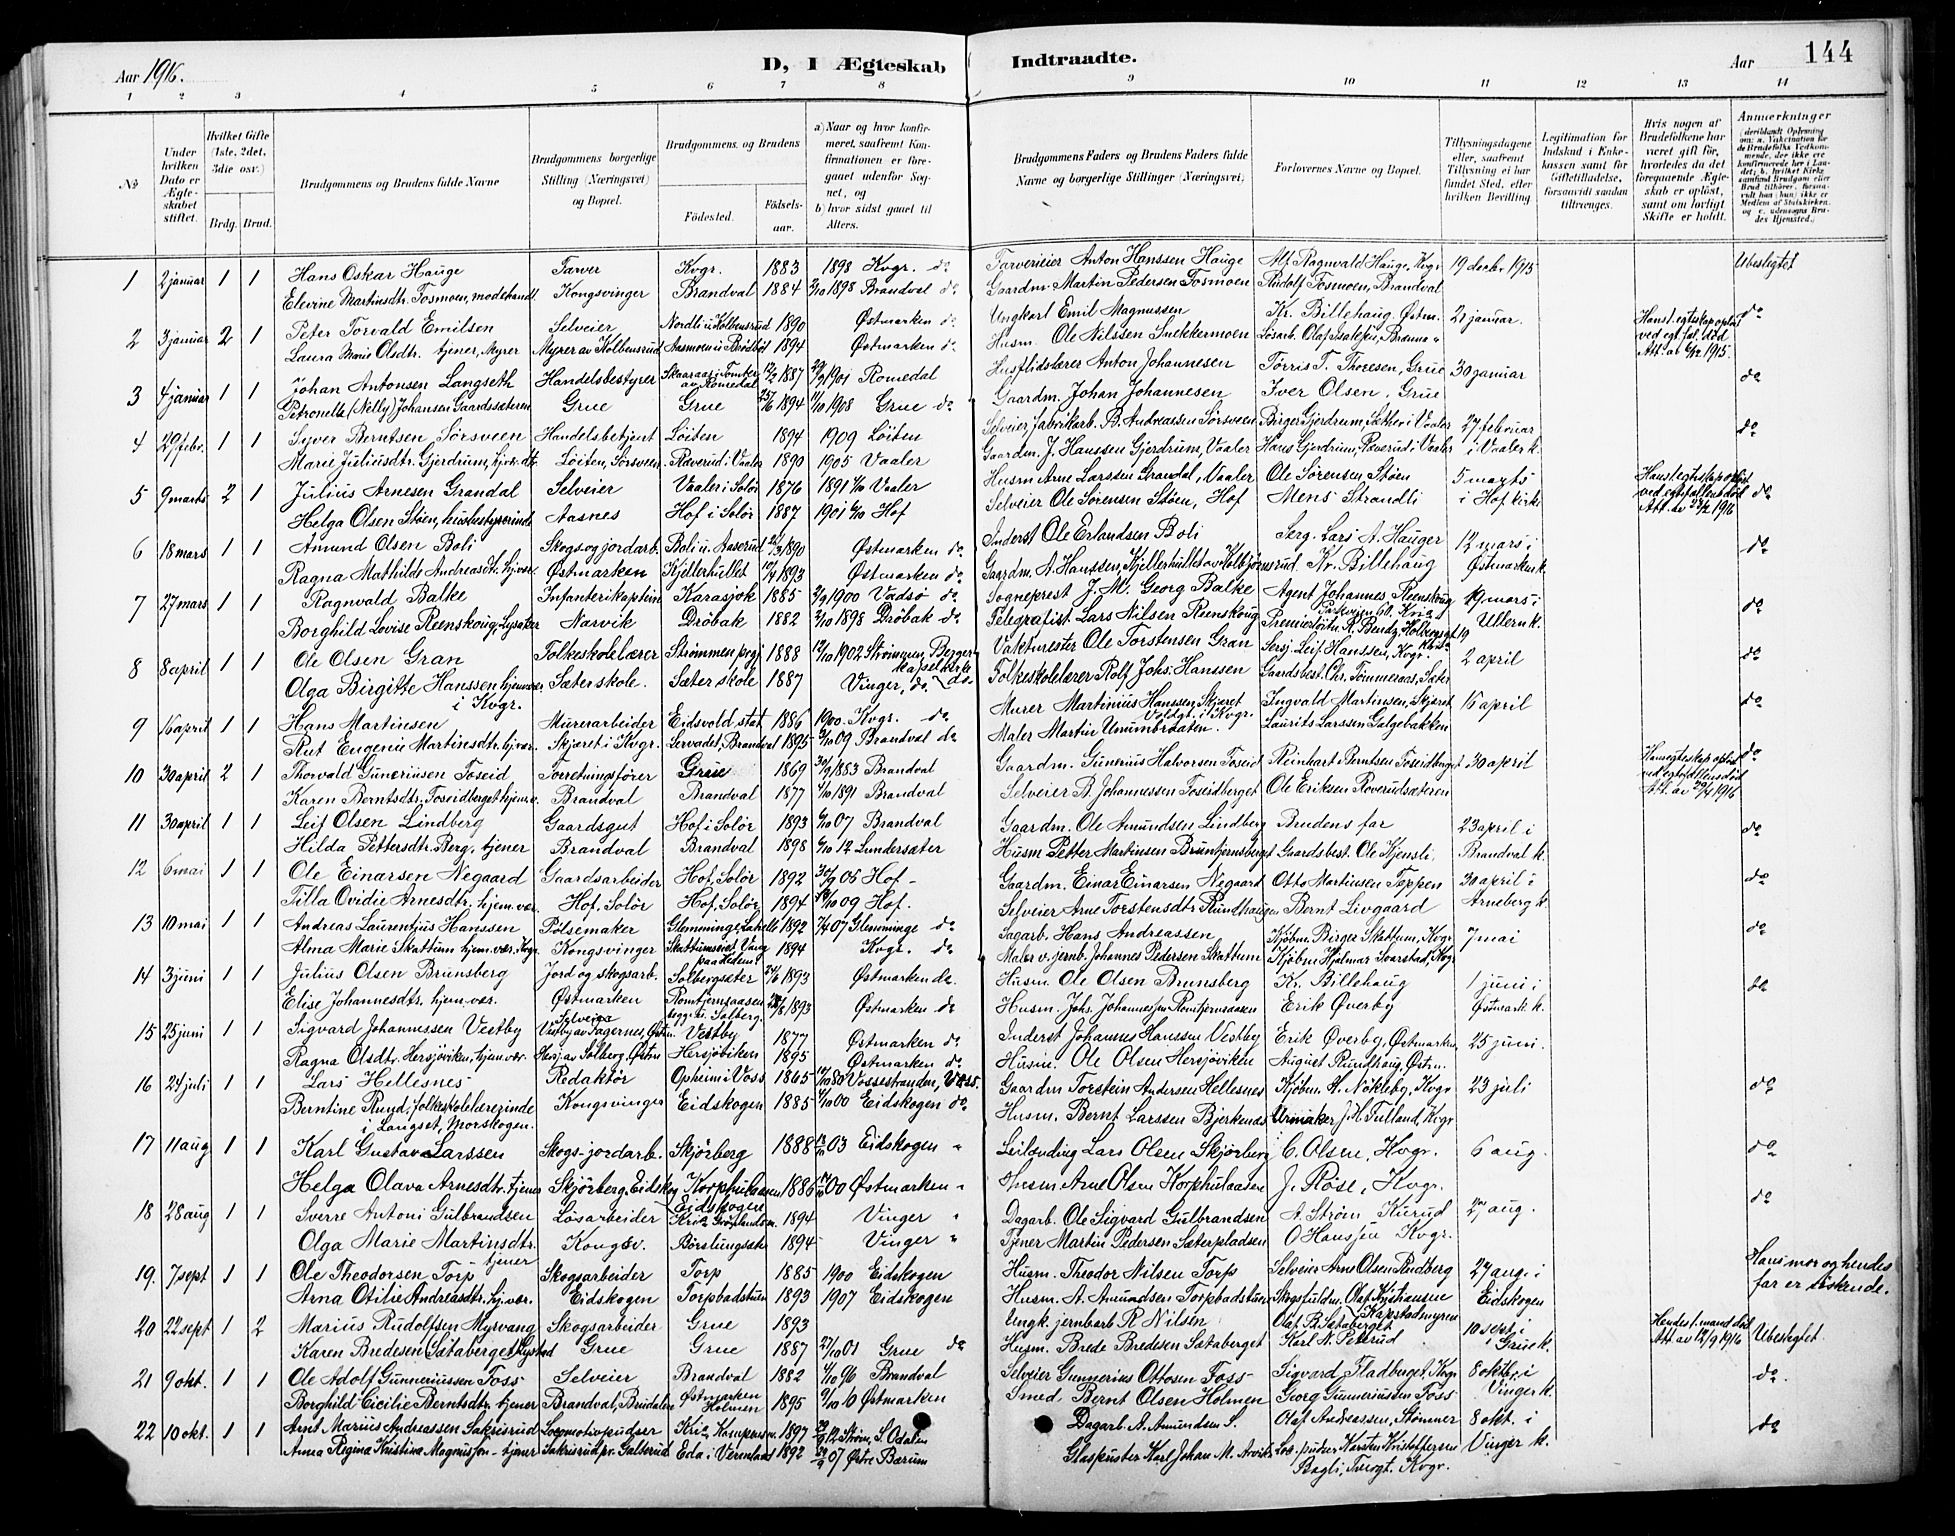 Aar 1916.
D, I Ægteskab Indtraadte.
Aar 144
1 2 3 4 5 6 7 8 9 10 11 12 13 14
No
Under hvilken Dato er Ægteskabet stiftet.
Hvilket Gifte (1ste, 2det, 3die osv.)
Brdg. Brud.
Brudgommens og Brudens fulde Navne
Brudgommens borgerlige Stilling (Næringsvei) og Bopæl.
Brudgommens og Brudens
Fødested. Fødselsaar.
a) Naar og hvor konfirmeret, saafremt Konfirmationen er foregaaet udenfor Sognet, og
b) hvor sidst gaaet til Alters.
Brudgommens Faders og Brudens Faders fulde Navne og borgerlige Stillinger (Næringsvei)
Forlovernes Navne og Bopæl.
Tillysningsdagene eller, saafremt Tillysning ei har fundet Sted, efter hvilken Bevilling
Legitimation for Indskud i Enkekassen samt for Giftetilladelse, forsaavidt saadan tiltrænges.
Hvis nogen af Brudefolkene har været gift før, hvorledes da det foregaaende Ægteskab er opløst, samt om lovligt Skifte er holdt.
Anmerkninger
1 2 januar 1 1 Hans Oskar Hauge Farver Kvgr. 1883 1898 Kvgr. do Farverieier Anton Hanssen Hauge Alf Ragnvald Hauge, Kvgr 19 decbr 1915 Ubeslegtet
Elevine Martinsdtr. Tosmoen, modehandl. Kongsvinger Brandval 1884 2/10 1898 Brandval do Gaardm. Martin Pedersen Tosmoen Rudolf Tosmoen, Brandval
2 3 januar 2 1 Peter Torvald Emilsen Selveier Nordli u. Kolbensrud 1890 Østmarken do Ungkarl Emil Magnussen Kr. Billehaug, Østm. 21 januar. Hans 1. egteskap opløst do
Laura Marie Olsdtr. tjener, Myrer Myrer av Kolbensrud Aasmoen u. Brødbøl 1894 Østmarken do Husm. Ole Nilssen Snekkermoen ved egtf. død
Att. av 6/12 1915.
3 4 januar 1 1 Johan Antonsen Langseth Handelsbestyrer Skaaraas i Tomter av Romedal 12/2 1887 29/9 1901 Romedal Husflidslærer Anton Johannesen Torris T. Thoresen, Grue 30 januar do
Petronelle (Nelly) Johansen Gaardssæteren Grue Grue 25/6 1894 11/10 1908 Grue do Gaardm. Johan Johannesen Iver Olsen, Grue
4 29 febr. 1 1 Syver Berntsen Sørsveen Handelsbetjent Løiten 1894 1909 Løiten Selveier fabrikarb. B. Andreassen Sørsveen Birger Gjerdrum, Sæther i Vaaler 27 februar do
Marie Juliusdtr. Gjerdrum, hjv. dtr. Løiten, Sørsveen Røverud i Vaaler 1890 1905 Vaaler Gaardm. J. Hanssen Gjerdrum, Vaaler Hans Gjerdrum, Røverud i Vaaler i Vaaler k.
5 9 marts 2 1 Julius Arnesen Grandal Selveier Vaaler i Solør 1876 1891 4/10 Vaaler Husm Arne Larssen Grandal, Vaaler Ole Sørensen Støen 5 marts Hans 1 egteskap opløst do
Helga Olsen Støen, husbestyrerinde Aasnes Hof i Solør 1887 1901 6/10 Hof Selveier Ole Sørensen Støen, Hof Mens Strandli i Hof kirke ved egtefællens død
Att. av 23/2 1916
6 18 mars 1 1 Amund Olsen Boli Skogs og jordarb. Boli u. Aaserud 21/3 1890 Østmarken do Inderst Ole Erlandsen Boli Serg. Lars A. Hauger 12 mars i do
Ragna Mathilde Andreasdtr. hj.vær. Østmarken Kjellerhullet 10/9 1893 Østmarken do Gaardm. A. Hanssen, Kjellerhullet av Kolbjørnsrud. Kr. Billehaug Østmarken k.
7 27 mars 1 1 Ragnvald Balke Infanterikaptein Karasjok 1885 2/9 1900 Vadsø do Sogneprest J. M. Georg Balke Agent Johannes Reenskoug 19 mars i do
Borghild Lovise Reenskoug, Lysaker Narvik Drøbak 1882 2/10 1898 Drøbak do Telegrafist Lars Nilsen Reenskoug Premierløitn. R. Bentz, Holbergsgt 19 Ullern k.
8 8 april 1 1 Ole Olsen Gran Folkeskolelærer Strømmen pr gj 1888 12/10 1902 Strømmen, Berger Vaktmester Ole Torstensen Gran Sersj. Leif Hanssen, Kvgr. 2 april do
Olga Birgitte Hanssen hjemvær. Sæter skole. Sæter skole 1887 Vinger, do. Folkeskolelærer Rolf Johs. Hanssen Gaardsbest. Chr. Tømmeraas, Sæter
i Kvgr.
9 16 april 1 1 Hans Martinsen Murerarbeider Eidsvold stat. 1886 1900. Kvgr. do Murer Martinius Hanssen, Skjæret Ingvald Martinsen, Skjæret 16 april do
Rut Eugenie Martinsdtr. hj.vær. Skjæret i Kvgr. Lervadet, Brandval 1895 3/10 09 Brandval do Maler Martin Unumbraaten. Laurits Larssen Galgebakken
10 30 april 2 1 Thorvald Guneriusen Foseid Forretningsfører Grue 1869 30/9 1883 Brandval Gaardm. Gunerius Halvorsen Foseid Reinhart Berntsen Foseidberget 30 april Hans egteskap opløst do
Karen Berntsdtr. Foseidberget hjem.v. Brandval Brandval 1877 4/10 1891 Brandval Selveier B. Johannessen Foseidberget Ole Eriksen Roverudsæteren ved egtefællens død
Att. av 29/4 1916
11 30 april 1 1 Leif Olsen Lindberg Gaardsgut Hof i Solør 1893 6/10 07 Brandval Gaardm. Ole Amundsen Lindberg Brudens far 23 april i do
Hilda Pettersdtr. Berg, tjener Brandval Brandval 1898 6/10 12 Lundersæter Husm Petter Martinsen Bruntjernsberget Gaardsbest. Ole Kjensli. Brandval k.
12 6 mai 1 1 Ole Einarsen Negaard Gaardsarbeider Hof, Solør 1892 30/9 06 Hof Gaardm. Einar Einarsen Negaard Otto Martinsen Toppen 30 april i do
Tilla Ovidie Arnesdtr. hjem.vær. Hof, Solør Hof, Solør 1894 /10 09 Hof. Selveier Arne Torstensdtr Rundhaugen Bernt Livgaard Arneberg k.
13 10 mai 1 1 Andreas Laurentius Hanssen Pølsemaker Glemminge, 1892 7/4 07 Glemminge do Sagarb. Hans Andreassen Kjøbm. Birger Skattum, Kvgr 7 mai do
Alma Marie Skattum hjem.vær. Kvgr. Kongsvinger Skattumseiet Vang paa Hedem. 1894 Kvgr. do Maler v. jernb. Johannes Pedersen Skattum Kjøbm Hjalmar Svarstad, Kvgr
14 3 juni 1 1 Julius Olsen Brunsberg Jord og skogsarb. Solbergseter 24/6 1893 Østmarken do. Husm. Ole Olsen Brunsberg Kr. Billehaug 1 juni i do
Elise Johannesdtr. hjem.vær. Østmarken Romtjernsaasen begge u. Solberg. 28/8 1893 Østmarken do Husm. Johs. Johannesen Romtjernsaasen Erik Øverby Østmark k.
15 25 juni 1 1 Sigvard Johannessen Vestby Selveier Vestby av Fagernes, Østm. Vestby 1877 Østmarken do Inderst Johannes Hanssen Vestby Erik Øverby, Østmarken 25 juni.
Ragna Olsdtr. Hersjøviken, hjem.vær. Hersj av Solberg, Østm Hersjøviken 1895 Østmarken do. Husm. Ole Olsen Hersjøviken August Rundhaug, Østm.
16 24 juli 1 1 Lars Hellesnes Redaktør Opheim i Voss 1865 /10 80 Vossestranden, Voss. Gaardm Torstein Andersen Hellesnes Kjøbm. A. Nøkleby, Kvgr 23 juli do
Berntine Ruud, folkeskolelærerinde Kongsvinger Eidskogen 1885 /10 00 Eidskogen do Husm. Bernt Larssen Bjerkenes Urmaker J. H. Tulland, Kvgr
i Langset, Morskogen.
17 11 aug 1 1 Karl Gustav Larssen Skogs-jordarb. Skjørberg 1888 03 Eidskogen " Leilending Lars Olsen Skjørberg C. Olsen, Kvgr. 6 aug. do
Helga Olava Arnesdtr. tjener Skjørberg, Eidskog Korphulaasen Eidskogen 1886 00 Østmarken " Husm Arne Olsen Korphulaasen J. Røse, Kvgr.
18 28 aug 1 1 Sverre Antoni Gulbrandsen Løsarbeider Kria Grønlandsn. 1894 Vinger " Dagarb. Ole Sigvard Gulbrandsen A. Strøm Kurud 27 aug. do
Olga Marie Martinsdtr. tjener Kongsv. Børslungsæter 1894 Vinger " Tjener Martin Pedersen Sæterpladsen O Hanssen Kvgr.
19. 7 sept 1 1 Ole Theodorsen Torp Skogsarbeider Torp 1885 1900 Eidskogen Husm. Theodor Nilsen Torp Selveier Arne Olsen Rudberg 27 aug i Hans mor og hendes
Arna Otilie Andreasdtr. hj.vær. Eidskogen Torpbadstuen 1893 1907 Eidskogen Husm. A. Amundsen Torpbadstuen Eidskogen far er søskende.
20 22 sept 1 2 Marius Rudolfsen Myrvang Skogsarbeider Grue 1893 Ungk. jernbarb. R Nilsen Olaf B. Sætaberget 10 sept i Hendes 1. mand død Ubeslegtet.
Karen Bredesen (Sætaberget) Nystad Grue Grue 1887 27/10 01 Grue do Husm. Brede Bredesen Sætaberget Karl N. Peterud Grue k. Att av 12/9 1916
21 9 okt. 1 1 Ole Adolf Gunneriussen Foss Selveier Brandval 1882 4/10 96 Brandval Selveier Gunnerius Ottosen Foss Sigvard Fladberget, Kvgr 8 oktbr i do.
Borghild Cecilie Berntsdtr. tjener Brandval, Brudalen Østmarken Holmen 1895 9/10 10 Østmarken Smed. Bernt Olsen Holmen Georg Gunneriussen Foss Vinger k.
22 10 okt. 1 1 Arnt Marius Andreassen Sakrisrud Locomotivpudser Kria Kampens m. 1897 12 Strøm, S. Odalen Dagarb. A. Amundsen S. Olaf Andreassen, Stømner 8 okt. i do
Anna Regina Kristina Magnusson - tjener Sakrisrud pr. Galterud Eda i Vermland 1892 07 Østre Bærum Glaspuster Karl Johan M. Arvika Loc. pudser Karsten Kristoffersen Vinger k.
Bagli, Kvgr.